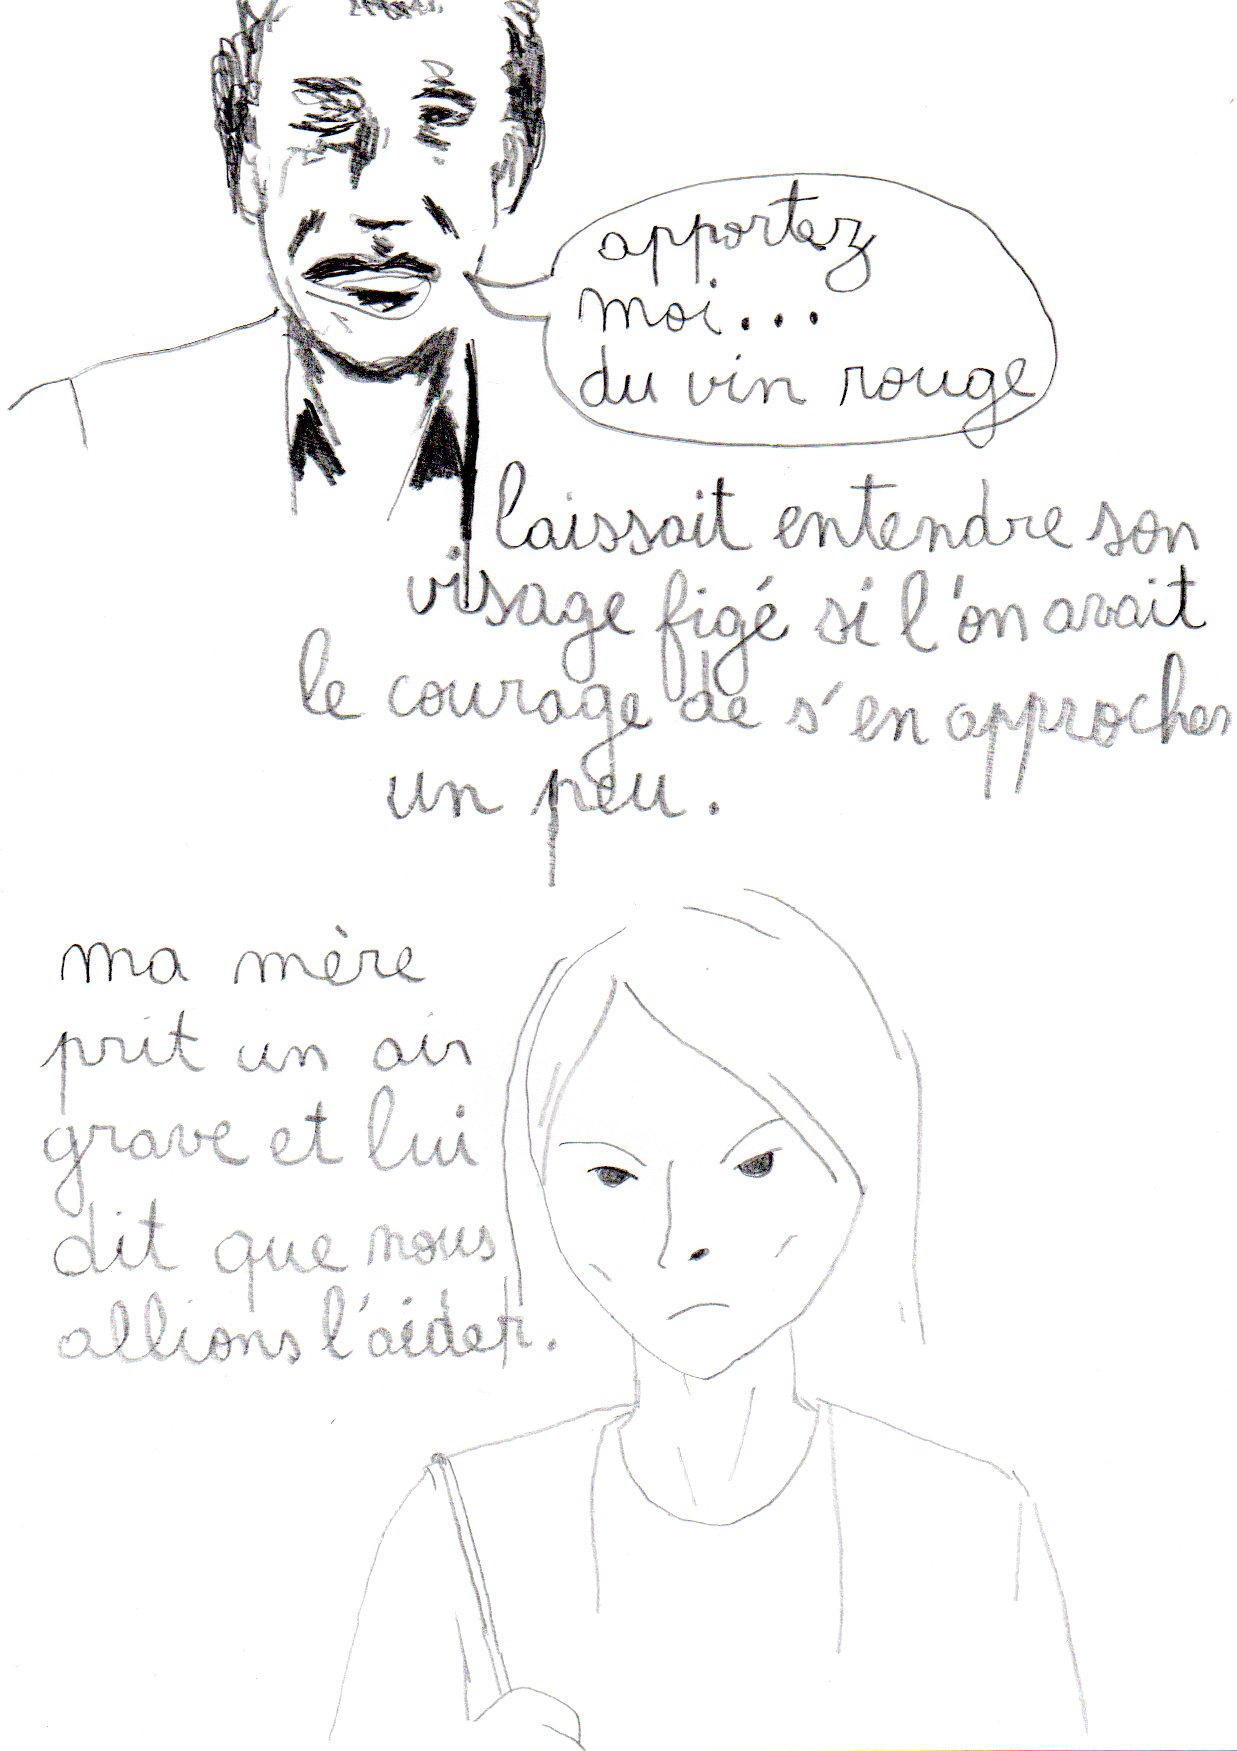 apportez
moi...
du vin rouge
laissait entendre son
visage figé si l'on avait
le courage de s'en approcher
un peu.
ma mère
prit un air
grave et lui
dit que nous
allions l'aider.